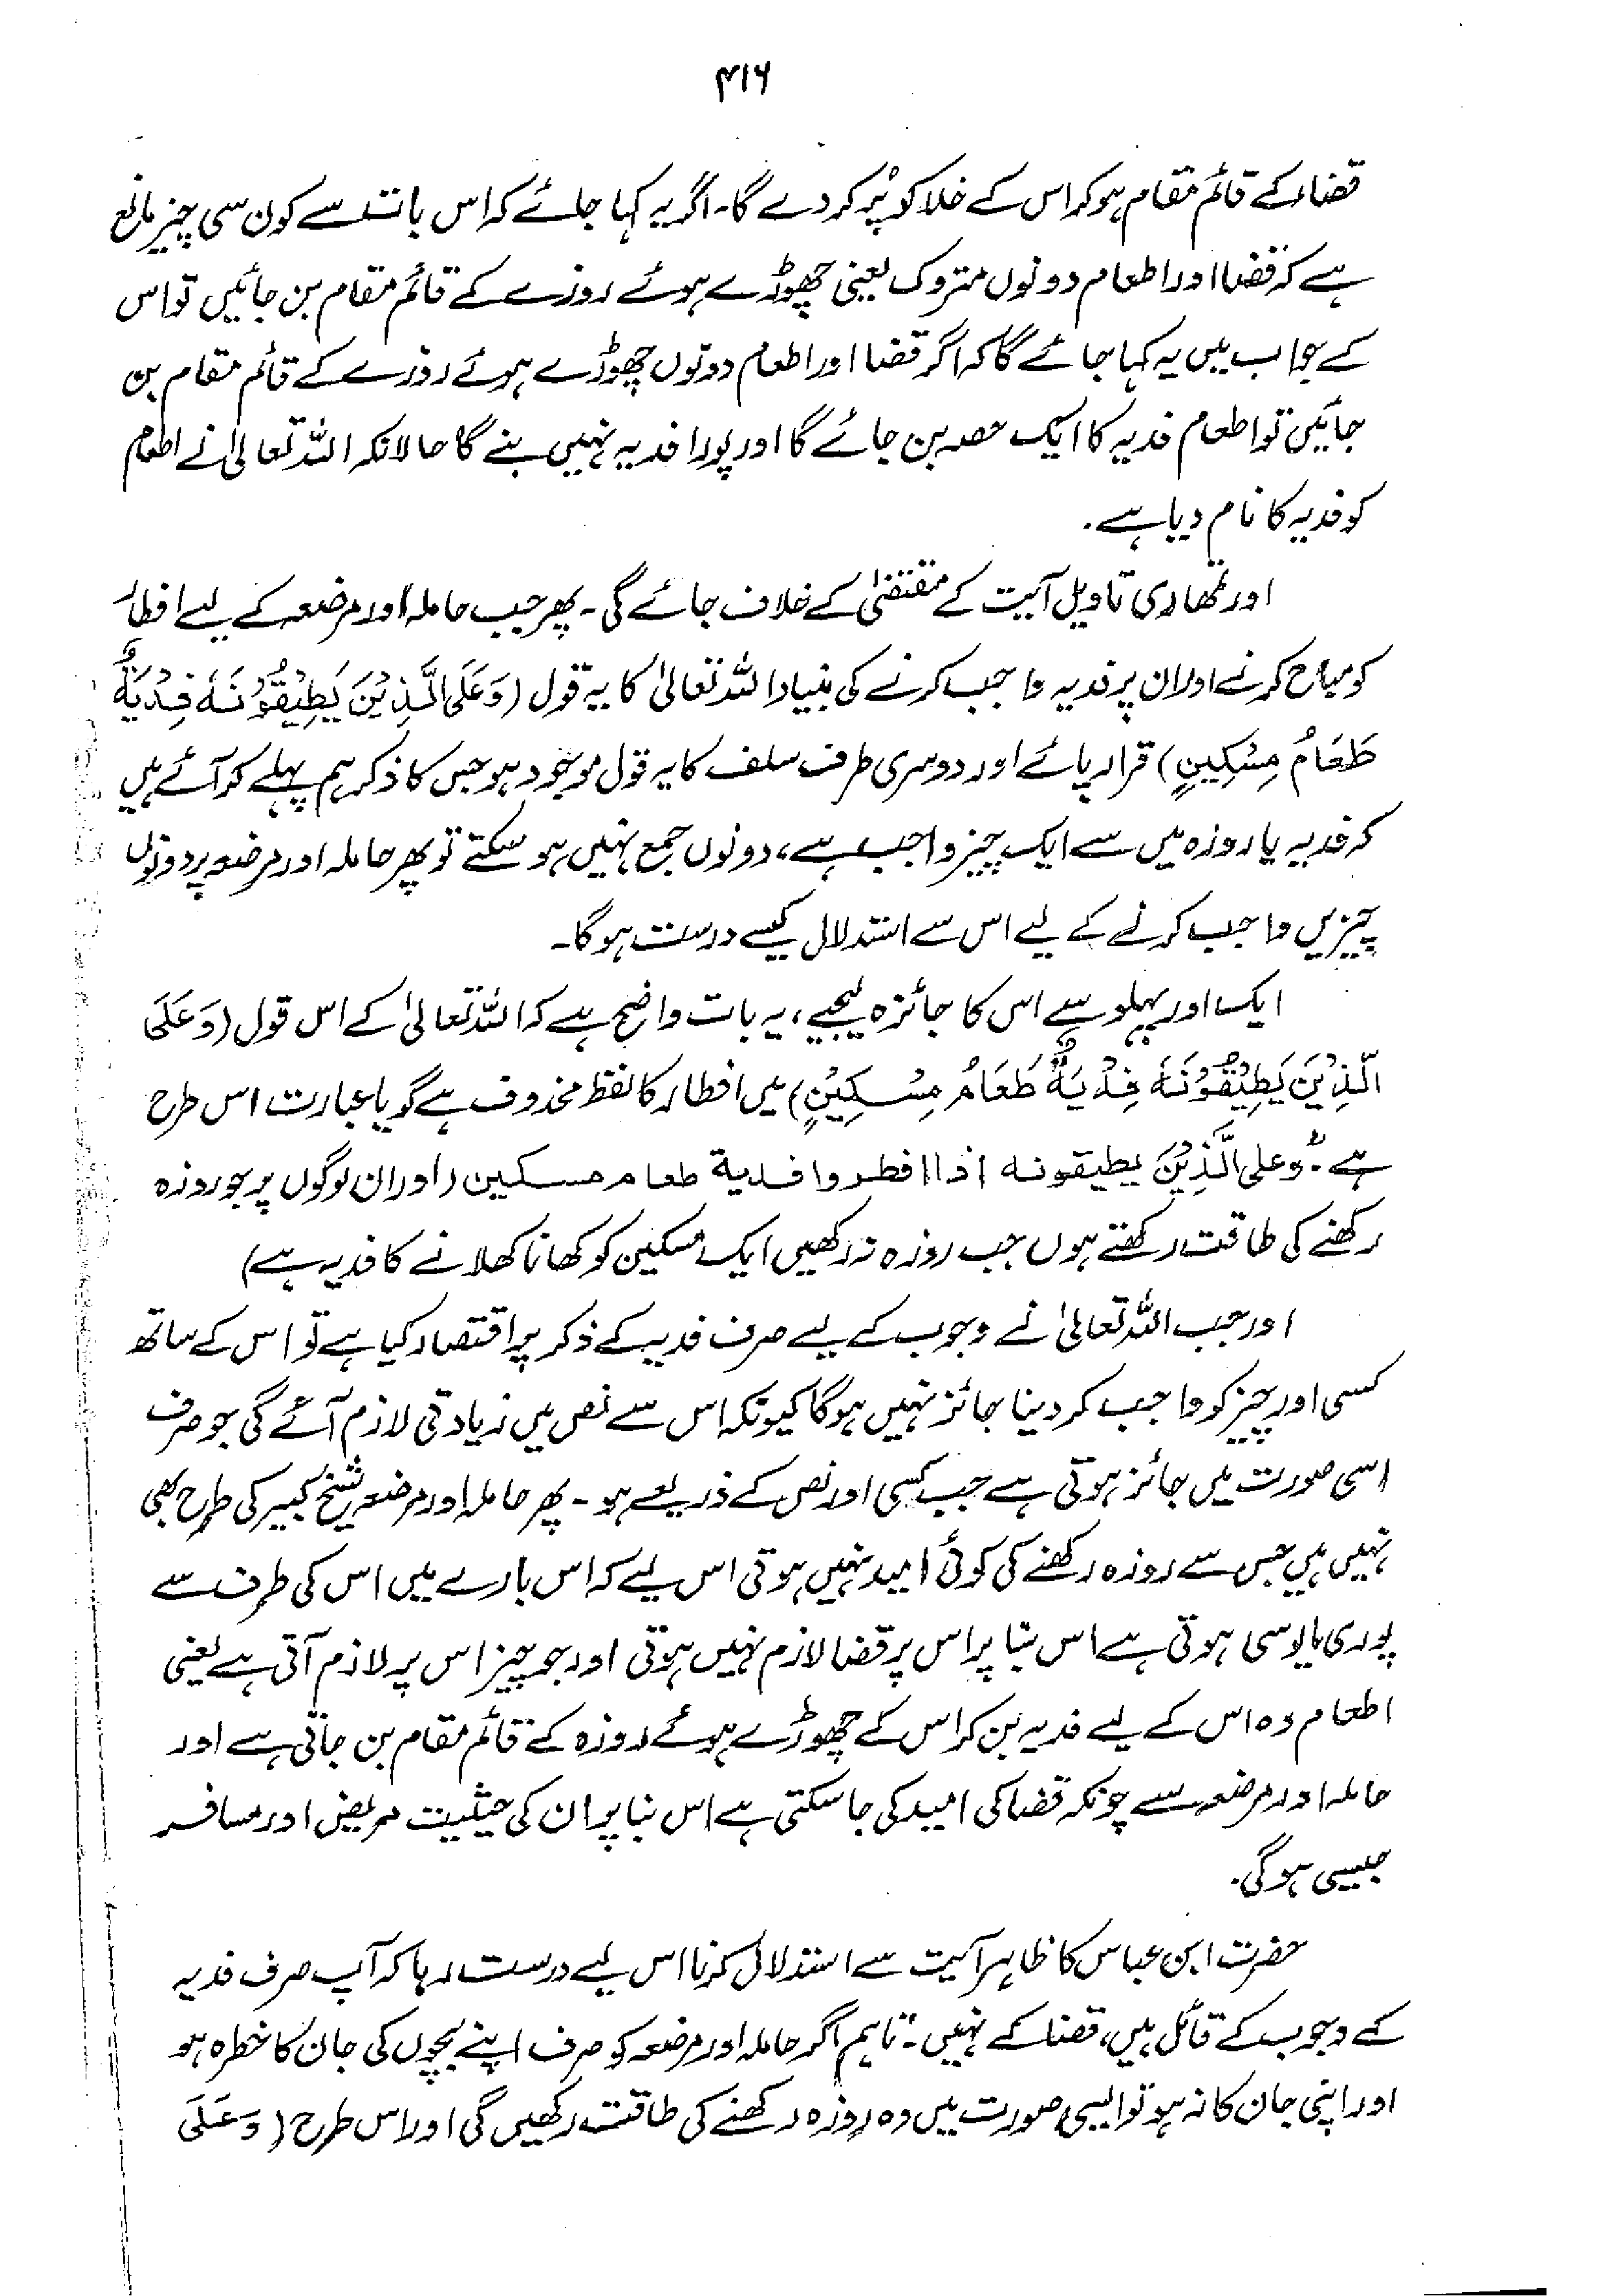 ۴۱۶
قضاء کے قائم مقام ہو کر اس کے خلا کو پُر کر دے گا۔ اگر یہ کہا جائے کہ اس بات سے کون سی چیز مانع
ہے کہ قضا اور اطعام دونوں متروک یعنی چھوڑے ہوئے روزے کے قائم مقام بن جائیں تو اس
کے جواب میں یہ کہا جائے گا کہ اگر قضا اور اطعام دونوں چھوڑے ہوئے روزے کے قائم مقام بن
جائیں تو اطعام فدیہ کا ایک حصہ بن جائے گا اور پورا فدیہ نہیں بنے گا حالانکہ اللہ تعالیٰ نے اطعام
کو فدیہ کا نام دیا ہے۔
اور تمھاری تاویل آیت کے مقتضیٰ کے خلاف جائے گی۔ پھر جب حاملہ اور مرضعہ کے لیے افطار
کو مباح کرنے اور ان پر فدیہ واجب کرنے کی بنیاد اللہ تعالیٰ کا یہ قول (وَعَلَی الَّذِیْنَ یُطِیْقُوْنَهٗ فِدْیَةٌ
طَعَامُ مِسْکِیْنٍ) قرار پائے اور دوسری طرف سلف کا یہ قول موجود ہو جس کا ذکر ہم پہلے کر آئے ہیں
کہ فدیہ یا روزہ میں سے ایک چیز واجب ہے، دونوں جمع نہیں ہو سکتے تو پھر حاملہ اور مرضعہ پر دونوں
چیزیں واجب کرنے کے لیے اس سے استدلال کیسے درست ہوگا۔
ایک اور پہلو سے اس کا جائزہ لیجیے، یہ بات واضح ہے کہ اللہ تعالیٰ کے اس قول (وَعَلَی
الَّذِیْنَ یُطِیْقُوْنَهٗ فِدْیَةٌ طَعَامُ مِسْکِیْنٍ) میں افطار کا لفظ محذوف ہے گویا عبارت اس طرح
ہے "وعلی الَّذِیْنَ یطیقونه اذا افطروا فدیة طعام مسکین (اور ان لوگوں پر جو روزہ
رکھنے کی طاقت رکھتے ہوں جب روزہ نہ رکھیں ایک مسکین کو کھانا کھلانے کا فدیہ ہے)
اور جب اللہ تعالیٰ نے وجوب کے لیے صرف فدیہ کے ذکر پر اقتصار کیا ہے تو اس کے ساتھ
کسی اور چیز کو واجب کر دینا جائز نہیں ہوگا کیونکہ اس سے نص میں زیادتی لازم آئے گی جو صرف
اسی صورت میں جائز ہوتی ہے جب کسی اور نص کے ذریعے ہو۔ پھر حاملہ اور مرضعہ شیخ کبیر کی طرح بھی
نہیں ہیں جس سے روزہ رکھنے کی کوئی امید نہیں ہوتی اس لیے کہ اس بارے میں اس کی طرف سے
پوری مایوسی ہوتی ہے اس بنا پر اس پر قضا لازم نہیں ہوتی اور جو چیز اس پر لازم آتی ہے یعنی
اطعام وہ اس کے لیے فدیہ بن کر اس کے چھوڑے ہوئے روزہ کے قائم مقام بن جاتی ہے اور
حاملہ اور مرضعہ سے چونکہ قضا کی امید کی جا سکتی ہے اس بنا پر ان کی حیثیت مریض اور مسافر
جیسی ہوگی۔
حضرت ابن عباس کا ظاہر آیت سے استدلال کرنا اس لیے درست رہا کہ آپ صرف فدیہ
کے وجوب کے قائل ہیں، قضا کے نہیں۔ تاہم اگر حاملہ اور مرضعہ کو صرف اپنے بچوں کی جان کا خطرہ ہو
اور اپنی جان کا نہ ہو تو ایسی صورت میں وہ روزہ رکھنے کی طاقت رکھیں گی اور اس طرح (وَعَلَی